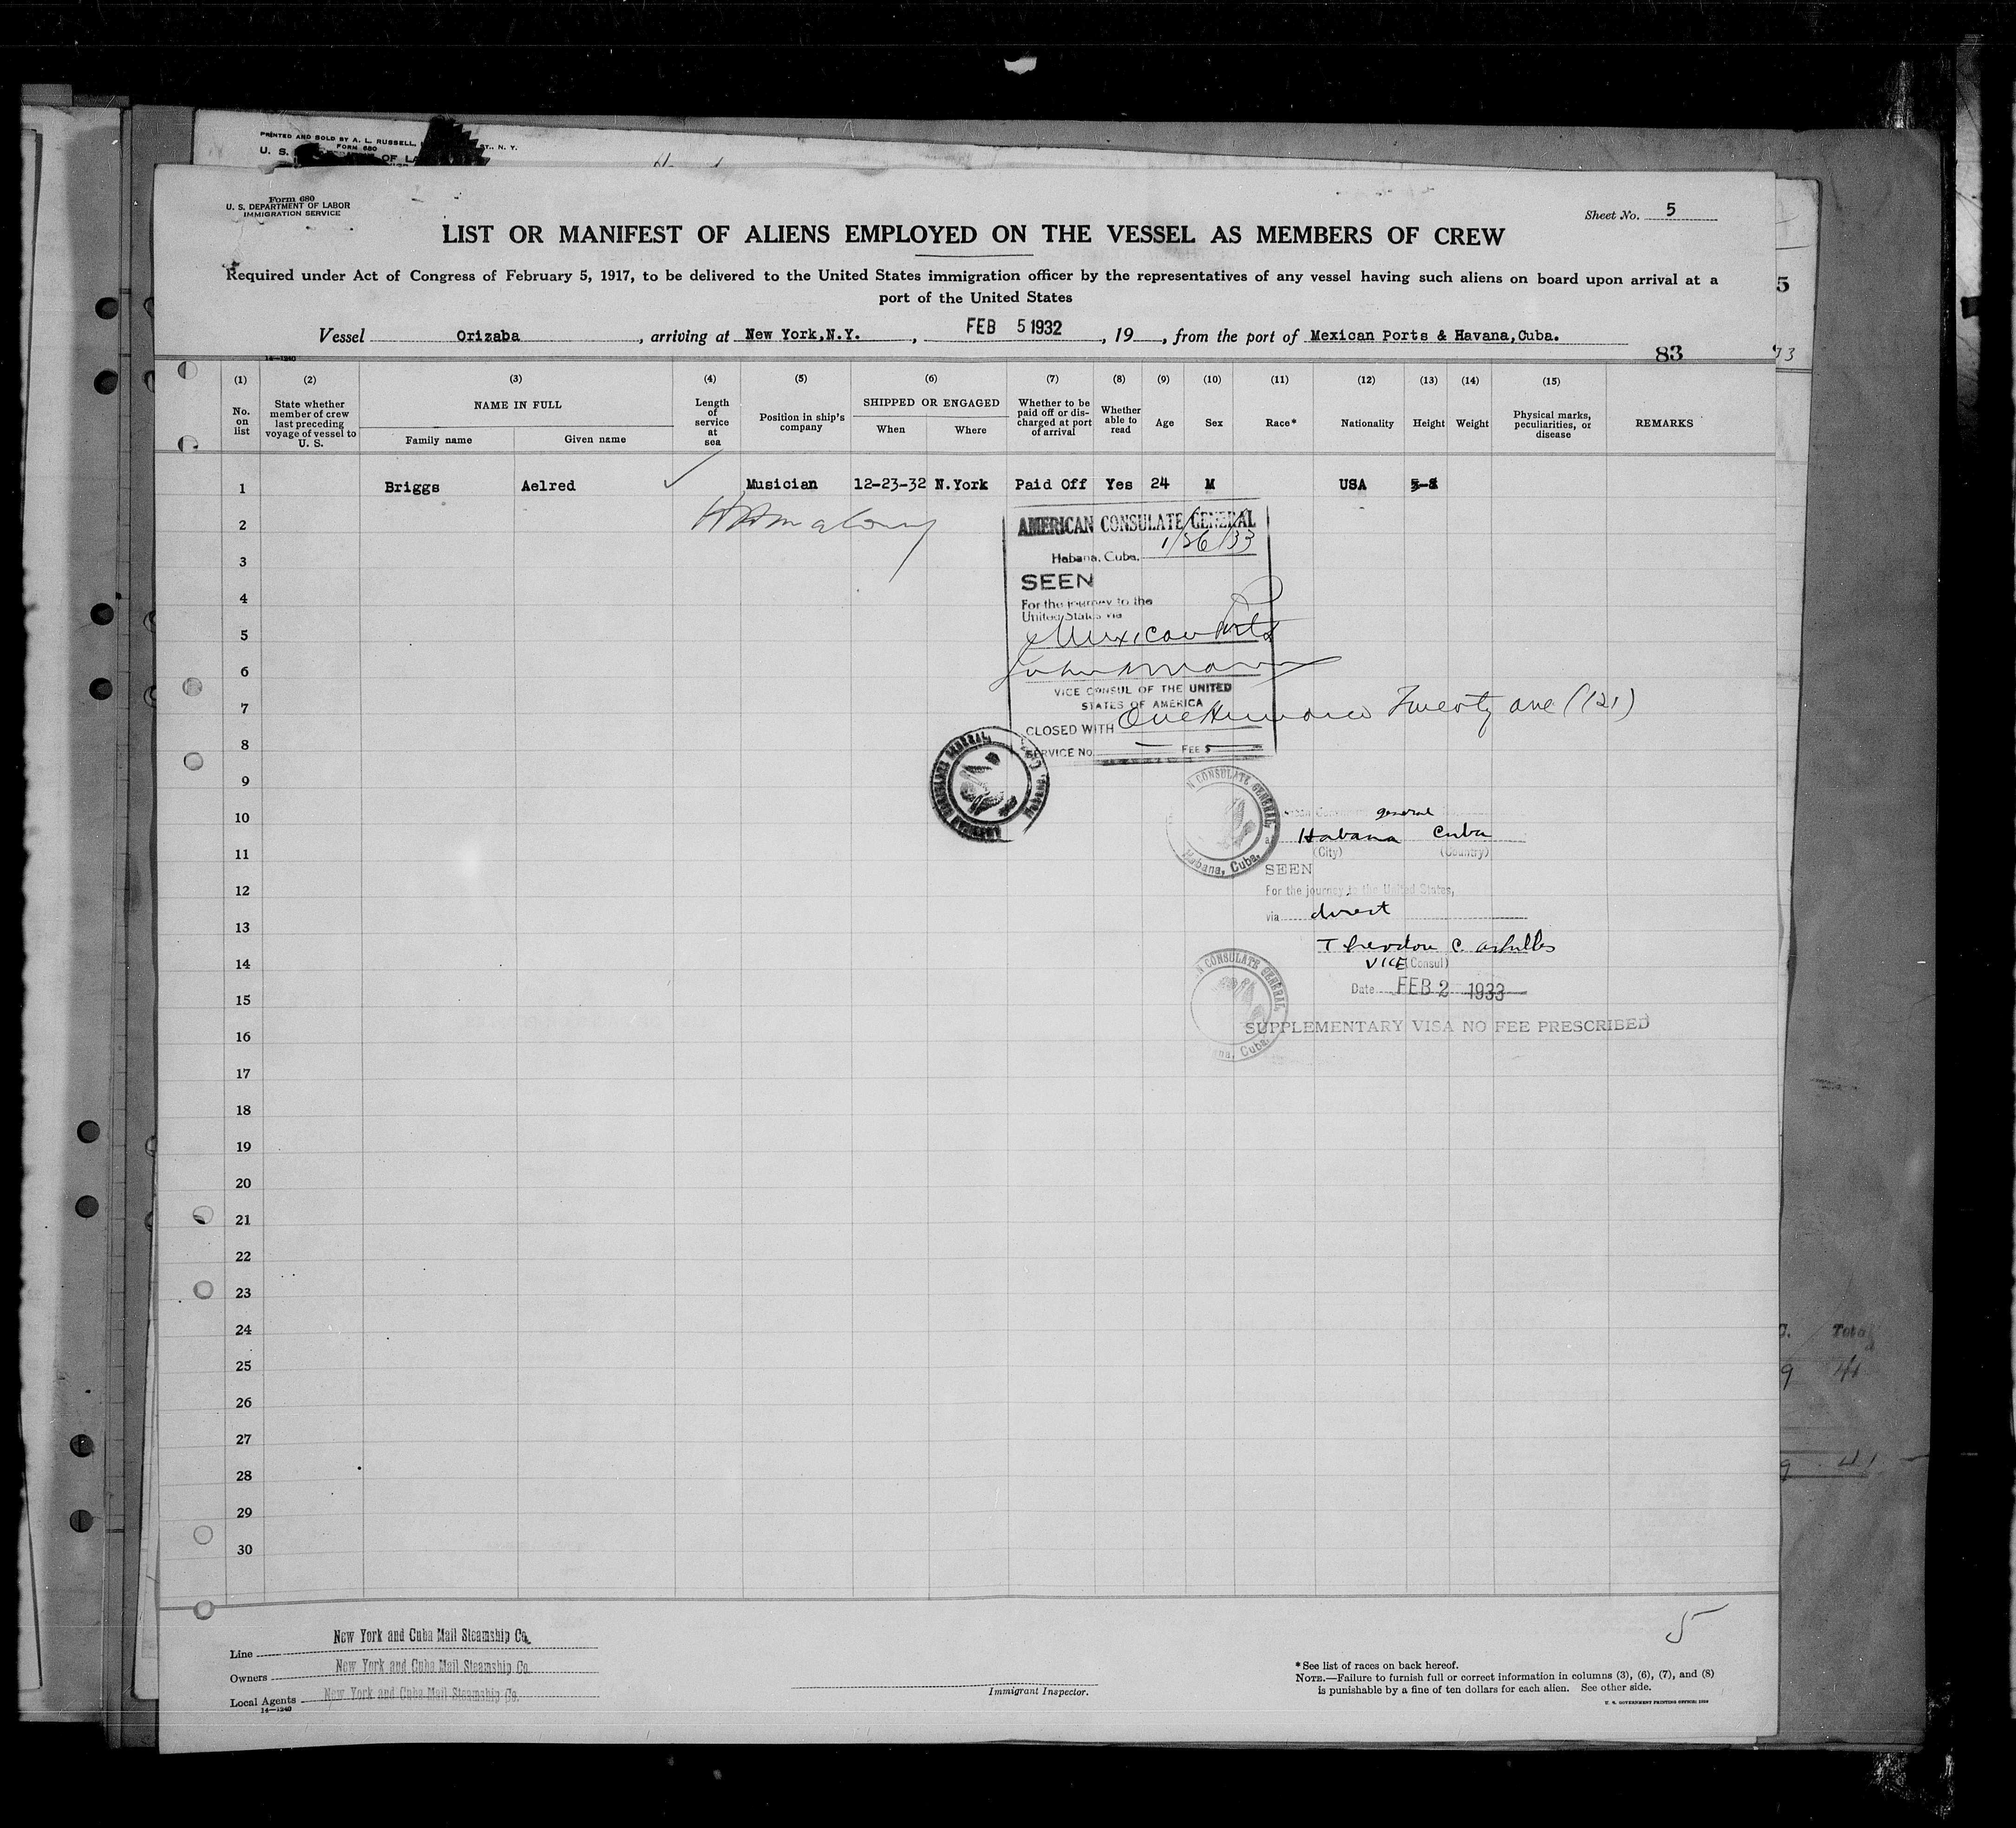 PRINTED AND SOLD BY A. L. RUSSELL, ST., N. Y.
FORM 680
U. S. OF LA
Form 680
U. S. DEPARTMENT OF LABOR
IMMIGRATION SERVICE
Sheet No. 5
LIST OR MANIFEST OF ALIENS EMPLOYED ON THE VESSEL AS MEMBERS OF CREW
Required under Act of Congress of February 5, 1917, to be delivered to the United States immigration officer by the representatives of any vessel having such aliens on board upon arrival at a
port of the United States
5
Vessel Orizaba, arriving at New York,N.Y., FEB 5 1932, 19 , from the port of Mexican Ports & Havana,Cuba.
14—1240
83
73
(1) (2) (3) (4) (5) (6) (7) (8) (9) (10) (11) (12) (13) (14) (15)
No. on list State whether member of crew last preceding voyage of vessel to U. S. NAME IN FULL Family name Given name Length of service at sea Position in ship's company SHIPPED OR ENGAGED When Where Whether to be paid off or discharged at port of arrival Whether able to read Age Sex Race* Nationality Height Weight Physical marks, peculiarities, or disease REMARKS
1 Briggs Aelred Musician 12-23-32 N.York Paid Off Yes 24 M USA 5-8
2
AMERICAN CONSULATE GENERAL
Habana, Cuba, 1/26/33
3
SEEN
4
For the journey to the
United States via
5
Mexican Ports
6
VICE CONSUL OF THE UNITED
STATES OF AMERICA
7
CLOSED WITH One Hundred Twenty one (121)
8
SERVICE No. — FEE $ —
AMERICAN CONSULATE GENERAL Habana, Cuba.
9
N CONSULATE GENERAL, Habana, Cuba.
10
general
Habana Cuba
(City) (Country)
11
SEEN
12
For the journey to the United States,
via direct
13
Theodore C. Achilles
14
VICE (Consul)
Date FEB 2 1933
15
N CONSULATE GENERAL na, Cuba.
SUPPLEMENTARY VISA NO FEE PRESCRIBED
16
17
18
19
20
21
22
23
24
25
26
27
28
29
30
Total
9 41
9 41
5
Line New York and Cuba Mail Steamship Co.
Owners New York and Cuba Mail Steamship Co.
Local Agents New York and Cuba Mail Steamship Co.
14—1240
Immigrant Inspector.
*See list of races on back hereof.
NOTE.—Failure to furnish full or correct information in columns (3), (6), (7), and (8)
is punishable by a fine of ten dollars for each alien. See other side.
U. S. GOVERNMENT PRINTING OFFICE: